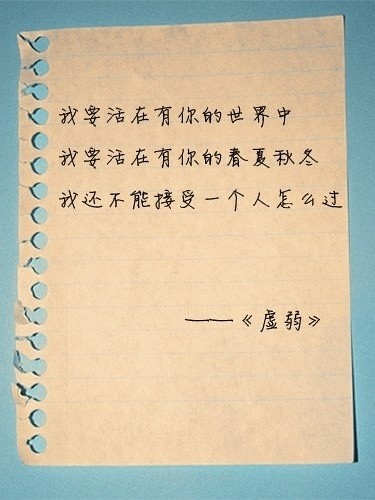 我要活在有你的世界中
我要活在有你的春夏秋冬
我还不能接受一个人怎么过
——《虚弱》